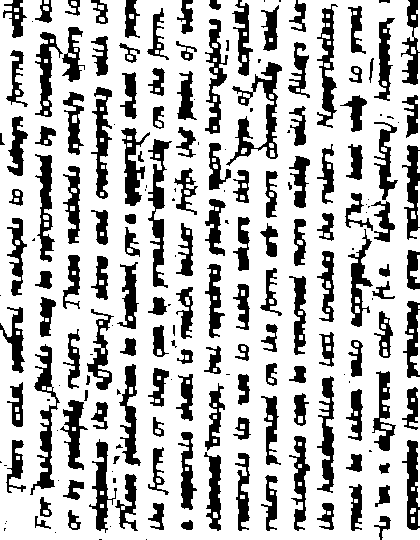 There exist several methods to design forms with
For instance, fields may be surrounded by bounding bo
or by guiding rulers. These methods specify where to
minimizes the effect of skew and overlapping with oth
These guides can be located on a separate sheet of pape
the form or they can be printed directly on the form.
a separate sheet is much better from the point of view
scanned image, but requires giving more instructions
restricts its use to tasks where this type of acquisiti
rulers printed on the form are more commonly used
rectangles can be removed more easily with filters tha
the handwritten text touches the rulers. Nevertheless,
must be taken into account: The best way to print
is in a different color (i.e. light yellow); however,